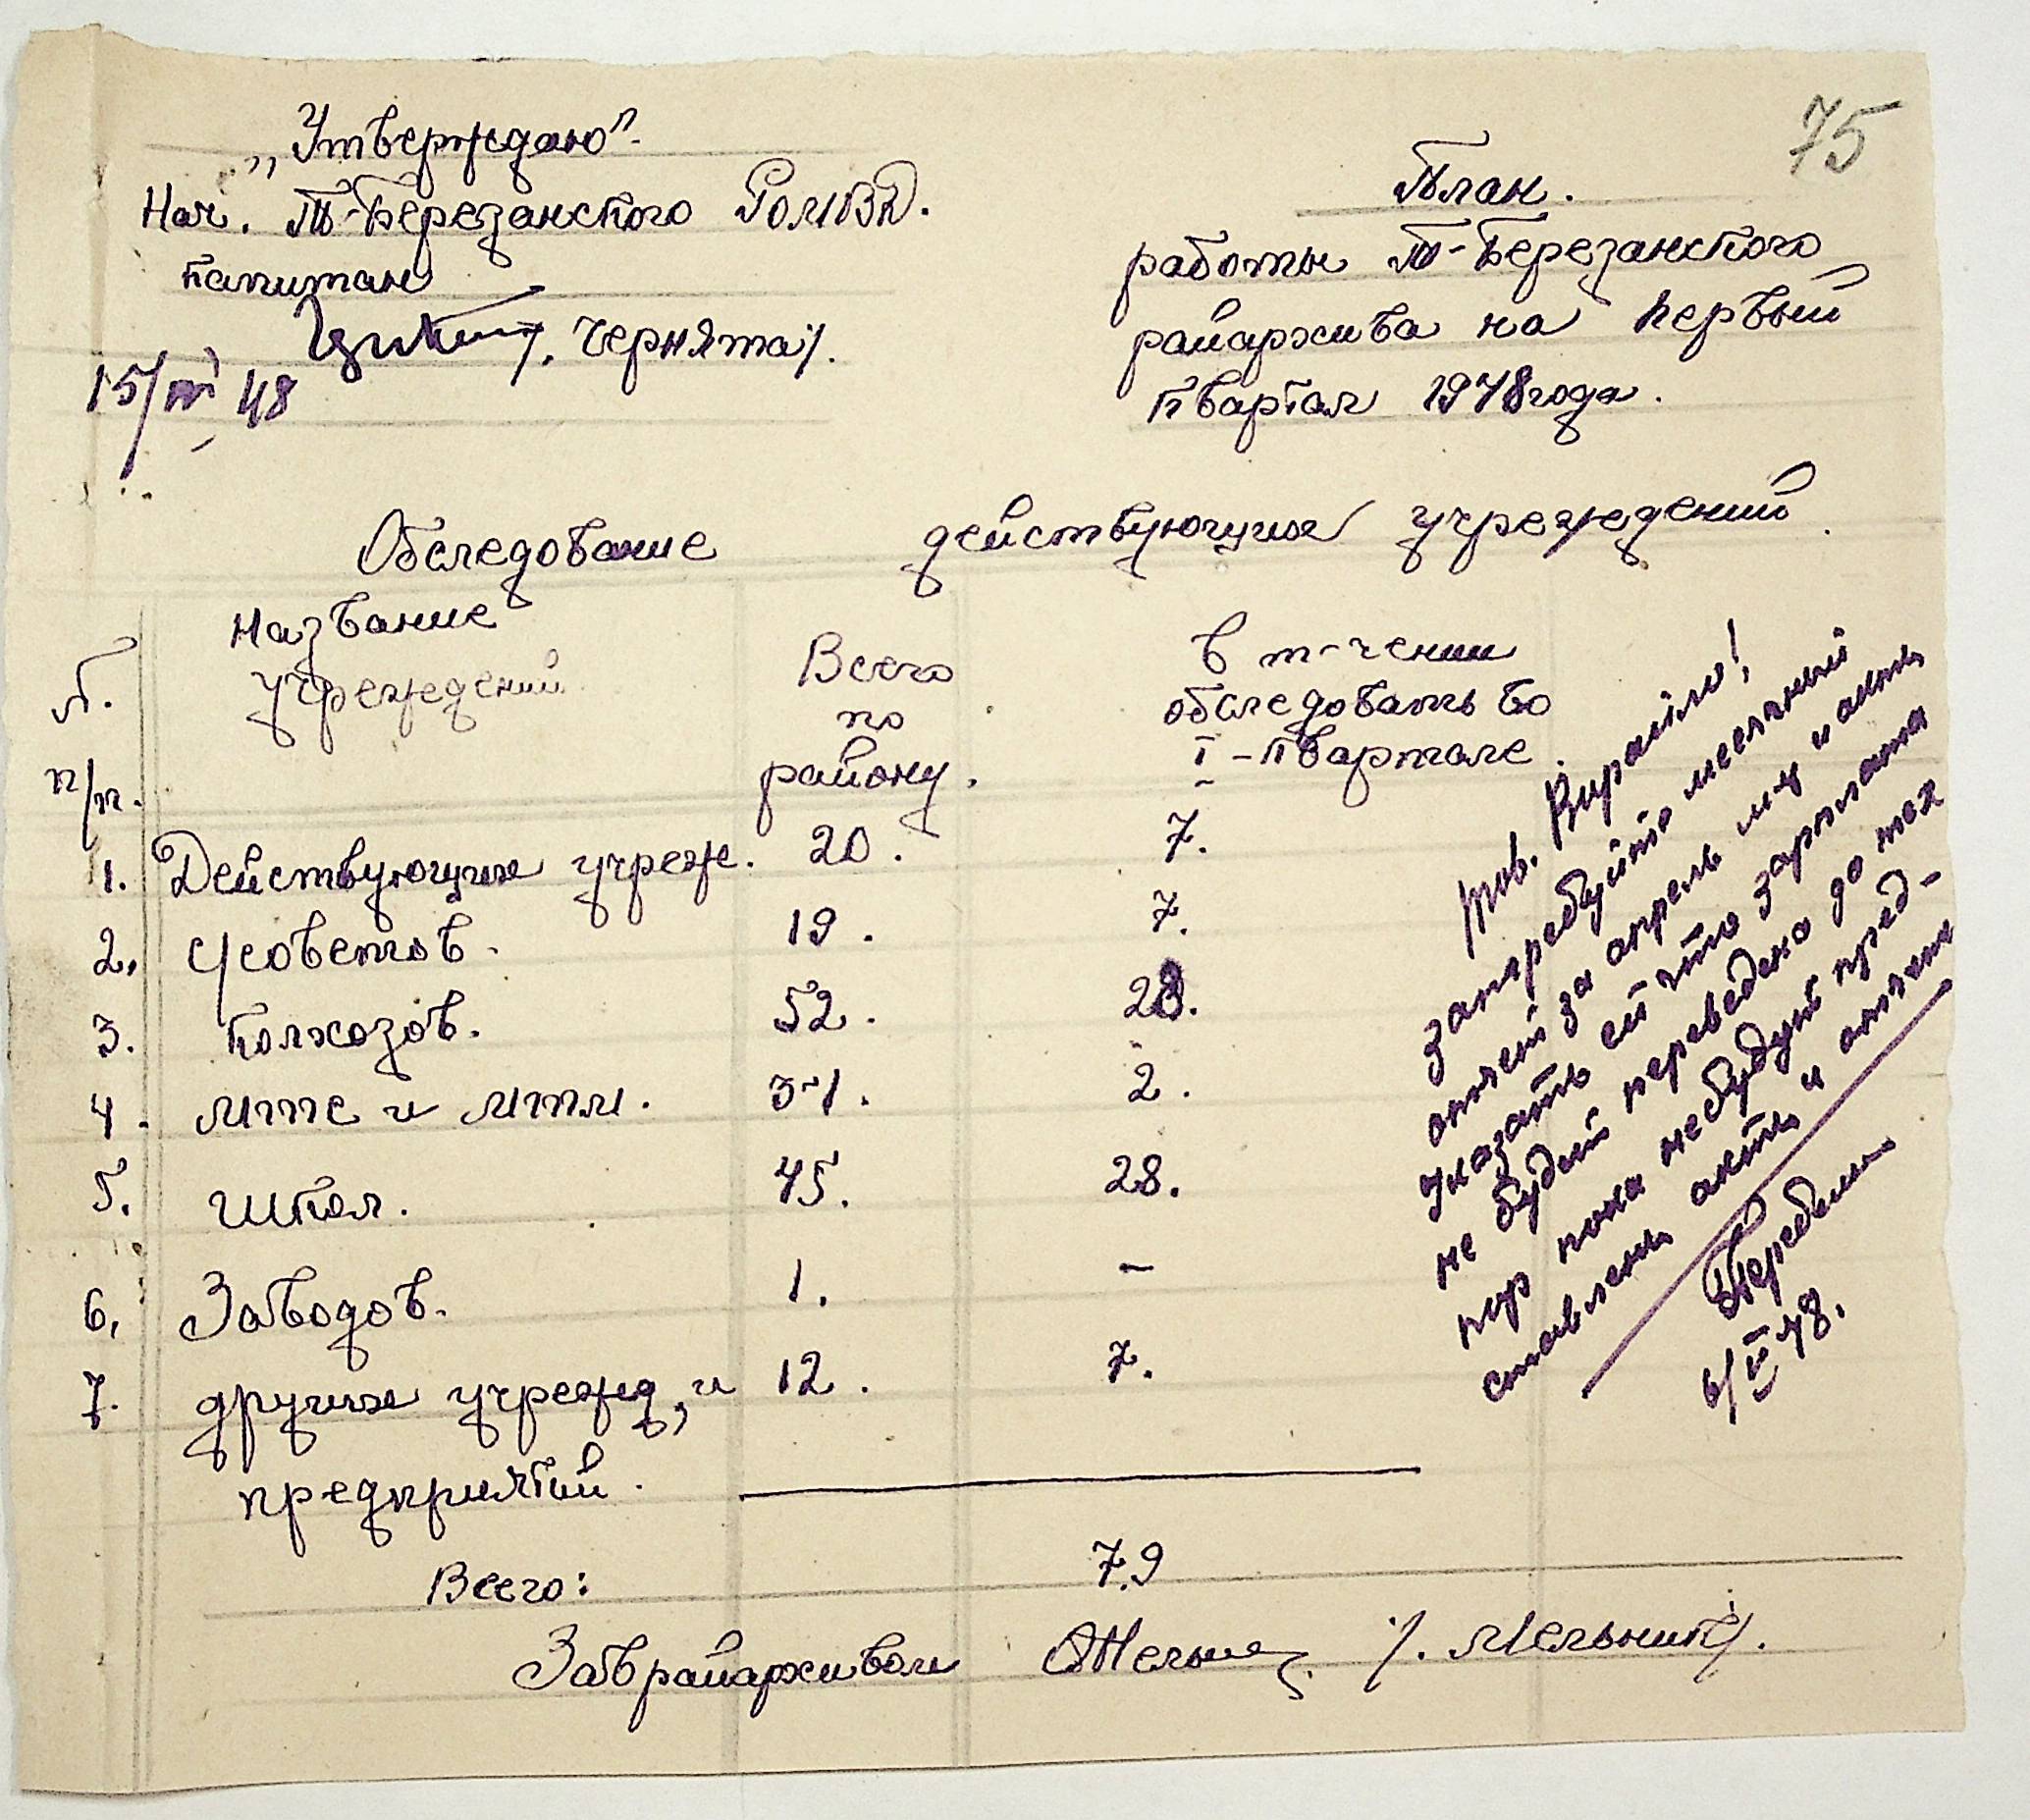 75
„Утверждаю".
Нач. Т-Березанского РОМВД.
капитан
/. Чернята/.
15/III 48
План.
работы Т-Березанского
райархива на первый
квартал 1948 года.
Обследование действующих учреждений.
N. п/п.
Название учреждений
Всего по району.
в т-чении обследовать во I-квартале.
1. Действующих учреж. 20. 7.
2. с/советов. 19. 7.
3. колхозов. 52. 28.
4. МТС и МТМ. 3-1. 2.
5. школ. 45. 28.
6. Заводов. 1. –
7. других учрежд, и 12. 7.
предприятий.
Всего: 79
Заврайархивом /. Мельник/.
тов. Вирайло!
затребуйте месячный
отчет за апрель м-ц и акты
указать ей что зарплата
не будет переведена до тех
пор пока не будут пред-
ставлены акты и отчеты
6/V 48.